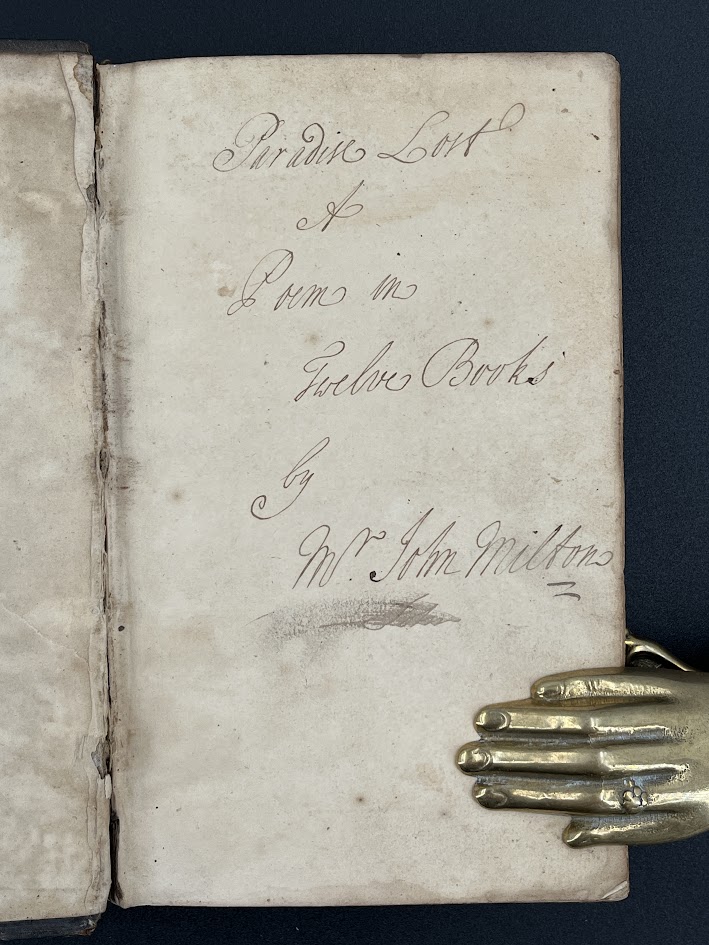 Paradise Lost
A
Poem in
Twelve Books
by
Mr. John Milton